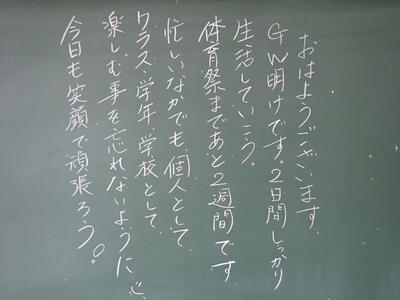 おはようございます
GW明けです。2日間しっかり
生活していこう。
体育祭まであと2週間です
忙しいなかでも、個人として
クラス・学年・学校として
楽しむ事を忘れないように
今日も笑顔で頑張ろう。